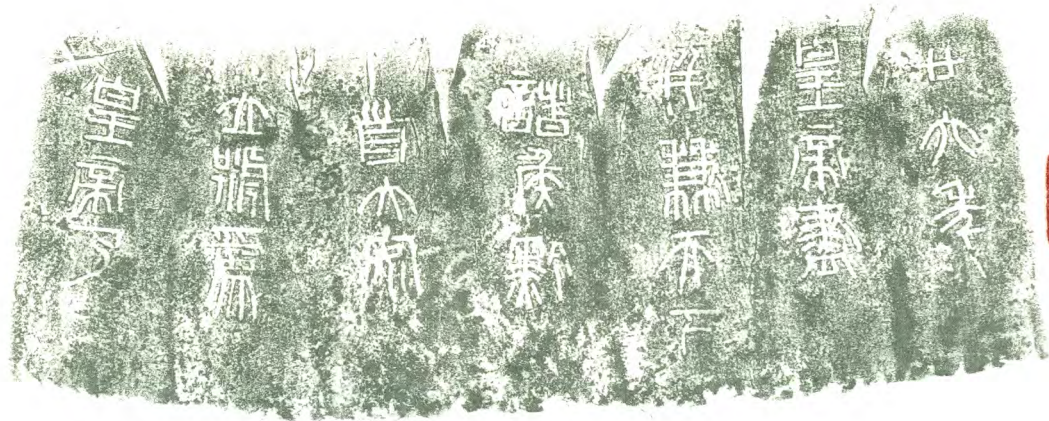 廿六年
皇帝盡
并兼天下
諸侯黔
首大安
立號為
皇帝乃